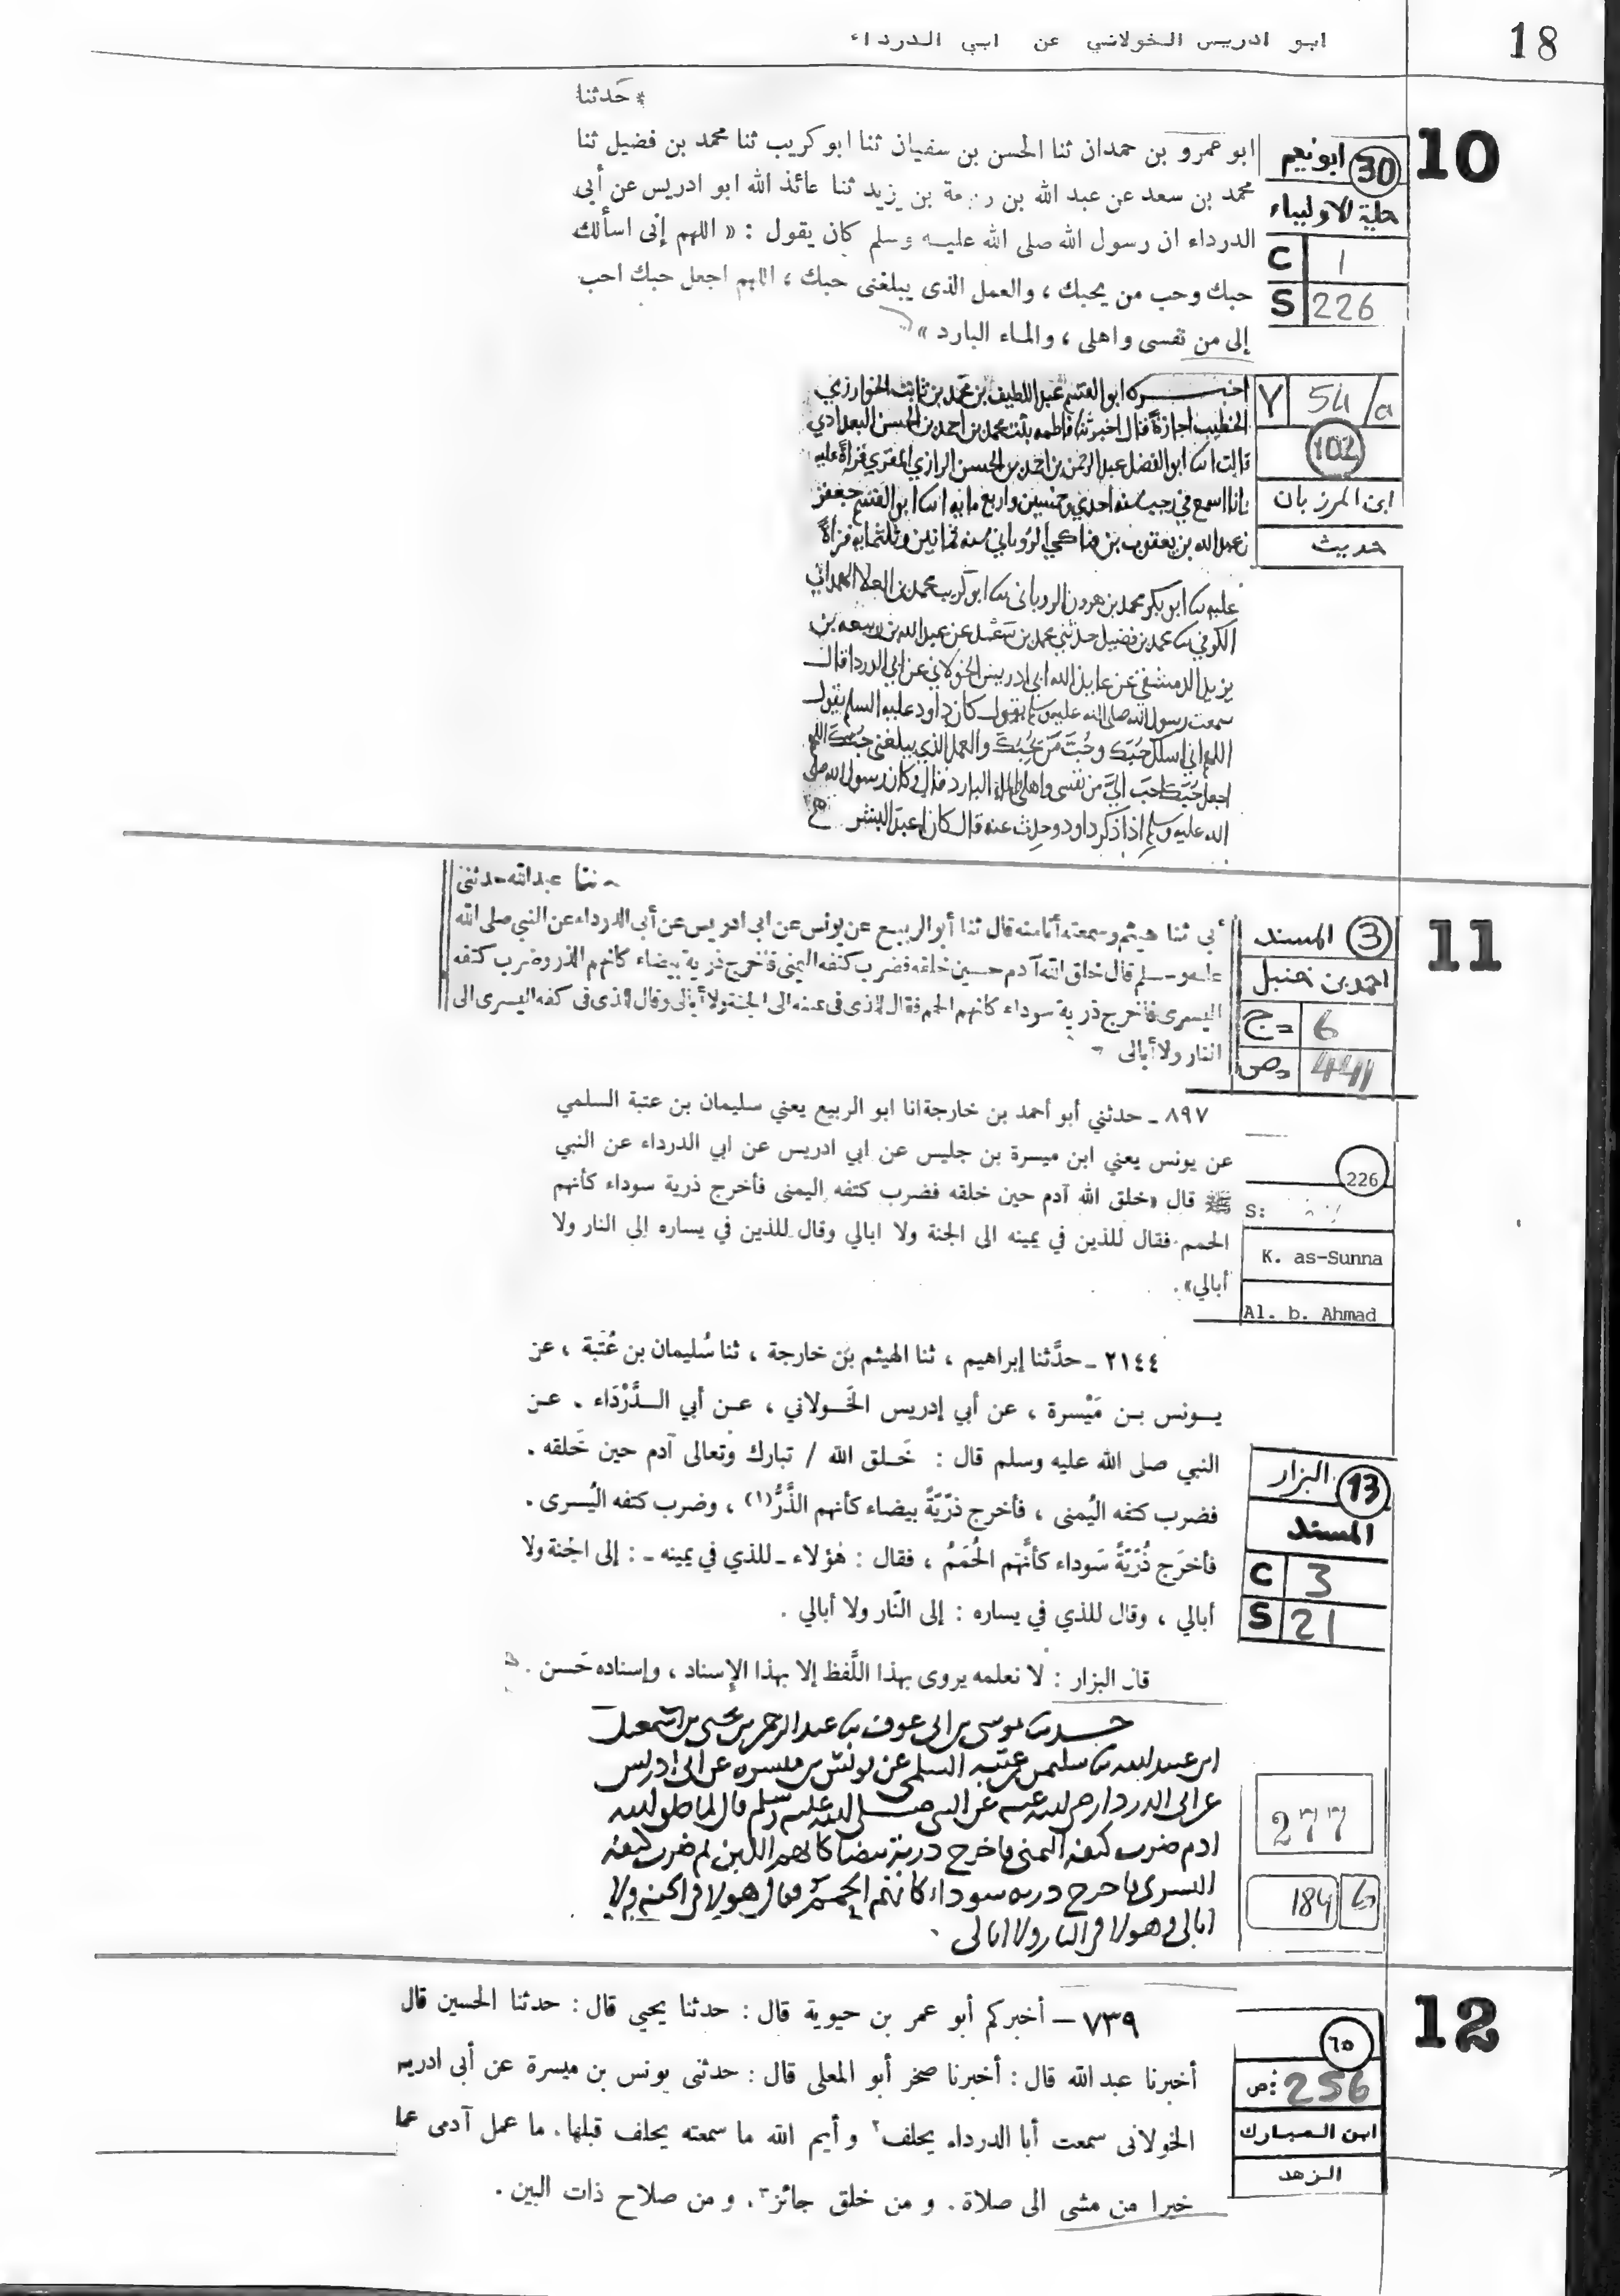 18
ابو ادريس الخولاني عن ابي الدرداء
* حَدثنا
10
ابو عمرو بن حمدان ثنا الحسن بن سفيان ثنا ابو كريب ثنا محمد بن فضيل ثنا
محمد بن سعد عن عبد الله بن بن يزيد ثنا عائذ الله ابو ادريس عن أبى
الدرداء ان رسول الله صلى الله عليه وسلم كان يقول : « اللهم إنى اسألك
حبك وحب من يحبك ، والعمل الذى يبلغنى حبك ، اللهم اجعل حبك احب
إلى من نفسى واهلى ، والماء البارد »
30 ابو نعيم
حلية الاولياء
C 1
S 226
اخبره ابو القسم عبد اللطيف بن محمد بن ثابت الخوارزي
الخطيب اجازةً قال اخبرتنا فاطمه بنت محمد بن احمد بن الحسن البغدادي
قالت انا ابو الفضل عبد الرحمن بن احمد بن الحسن الرازي المقري قراةً عليه
وانا اسمع في رجب سنه احدي وخمسين واربع مايه انا ابو القسم جعفر
بن عبد الله بن يعقوب بن فناكي الروياني سنه ثمانين وثلثمايه قراةً
عليه ثنا ابو بكر محمد بن هرون الروياني ثنا ابو كريب محمد بن العلا الهمداني
الكوفي ثنا محمد بن فضيل حدثني محمد بن سعد عن عبد الله بن ربيعه بن
يزيد الدمشقي عن عايذ الله ابي ادريس الخولاني عن ابي الدردا قال
سمعت رسول الله صلى الله عليه وسلم يقول كان داود عليه السلم يقول
اللهم اني اسلك حُبَّكَ وحُبَّ مَن يُحِبُّكَ والعمل الذي يبلغني حُبَّكَ اللهم
اجعل حُبَّكَ احبَّ اليَّ من نفسي واهلي والماء البارد قال وكان رسول الله صلى
الله عليه وسلم اذا ذكر داود وحدث عنه قال كان اعبد البشر
Y 54/a
102
ابن المرزبان
حديث
حدثنا عبدالله حدثنى
11
أبى ثنا هيثم وسمعته أنا منه قال ثنا أبو الربيع عن يونس عن ابى ادريس عن أبى الدرداء عن النبي صلى الله
عليه وسلم قال خلق الله آدم حين خلقه فضرب كتفه اليمنى فأخرج ذرية بيضاء كأنهم الذر وضرب كتفه
اليسرى فأخرج ذرية سوداء كأنهم الحم فقال للذى فى يمينه الى الجنة ولا أبالى وقال للذى فى كفه اليسرى الى
النار ولا أبالى
3 المسند
احمد بن حنبل
ج 6
ص 441
٨٩٧ ـ حدثني أبو أحمد بن خارجة انا ابو الربيع يعني سليمان بن عتبة السلمي
عن يونس يعني ابن ميسرة بن جليس عن ابي ادريس عن ابي الدرداء عن النبي
ﷺ قال «خلق الله آدم حين خلقه فضرب كتفه اليمنى فأخرج ذرية سوداء كأنهم
الحمم فقال للذين في يمينه الى الجنة ولا ابالي وقال للذين في يساره إلى النار ولا
أبالي».
226
S:
K. as-Sunna
Al. b. Ahmad
٢١٤٤ ـ حدَّثنا إبراهيم ، ثنا الهيثم بن خارجة ، ثنا سُليمان بن عُتبة ، عن
يـونس بـن مَيْسرة ، عن أبي إدريس الخَـولاني ، عـن أبي الـدَّرْدَاء ، عـن
النبي صلى الله عليه وسلم قال : خَـلق الله / تبارك وتعالى آدم حين خَلقه .
فضرب كتفه اليُمنى ، فأخرج ذرّيّةً بيضاء كأنهم الذَّرُّ(١) ، وضرب كتفه اليُسرى .
فأخرَج ذُرّيّةً سَوداء كأنَّهم الحُمَمُ ، فقال : هٰؤلاء ـ للذي في يمينه ـ : إلى الجنة ولا
أبالي ، وقال للذي في يساره : إلى النّار ولا أبالي .
قال البزار : لا نعلمه يروى بهذا اللَّفظ إلا بهذا الإسناد ، وإسناده حَسن .
13 البزار
المسند
C 3
S 21
حدثنا موسى بن ابى عوف ثنا عبد الرحمن بن يحيى بن اسمعيل
ابن عبيد الله ثنا سليمن بن عتبه السلمى عن يونس بن ميسره عن ابى ادريس
عن ابى الدردا رضى الله عنه عن النبى صلى الله عليه وسلم قال لما خلق الله
ادم ضرب كتفه اليمنى فاخرج ذرية بيضا كانهم اللبن ثم ضرب كتفه
اليسرى فاخرج ذريه سوداء كانهم الحمم فقال هولا فى الجنه ولا
ابالى وهولا فى النار ولا ابالى
277
184 b
12
٧٣٩ – أخبركم أبو عمر بن حيوية قال : حدثنا يحيي قال : حدثنا الحسين قال
أخبرنا عبد الله قال : أخبرنا صخر أبو المعلى قال : حدثنى يونس بن ميسرة عن أبى ادريس
الخولانى سمعت أبا الدرداء يحلف٢ و أيم الله ما سمعته يحلف قبلها، ما عمل آدمى عملا
خيرا من مشى الى صلاة، و من خلق جائز٣، و من صلاح ذات البين .
٦٥
ص: 256
ابن المبارك
الزهد